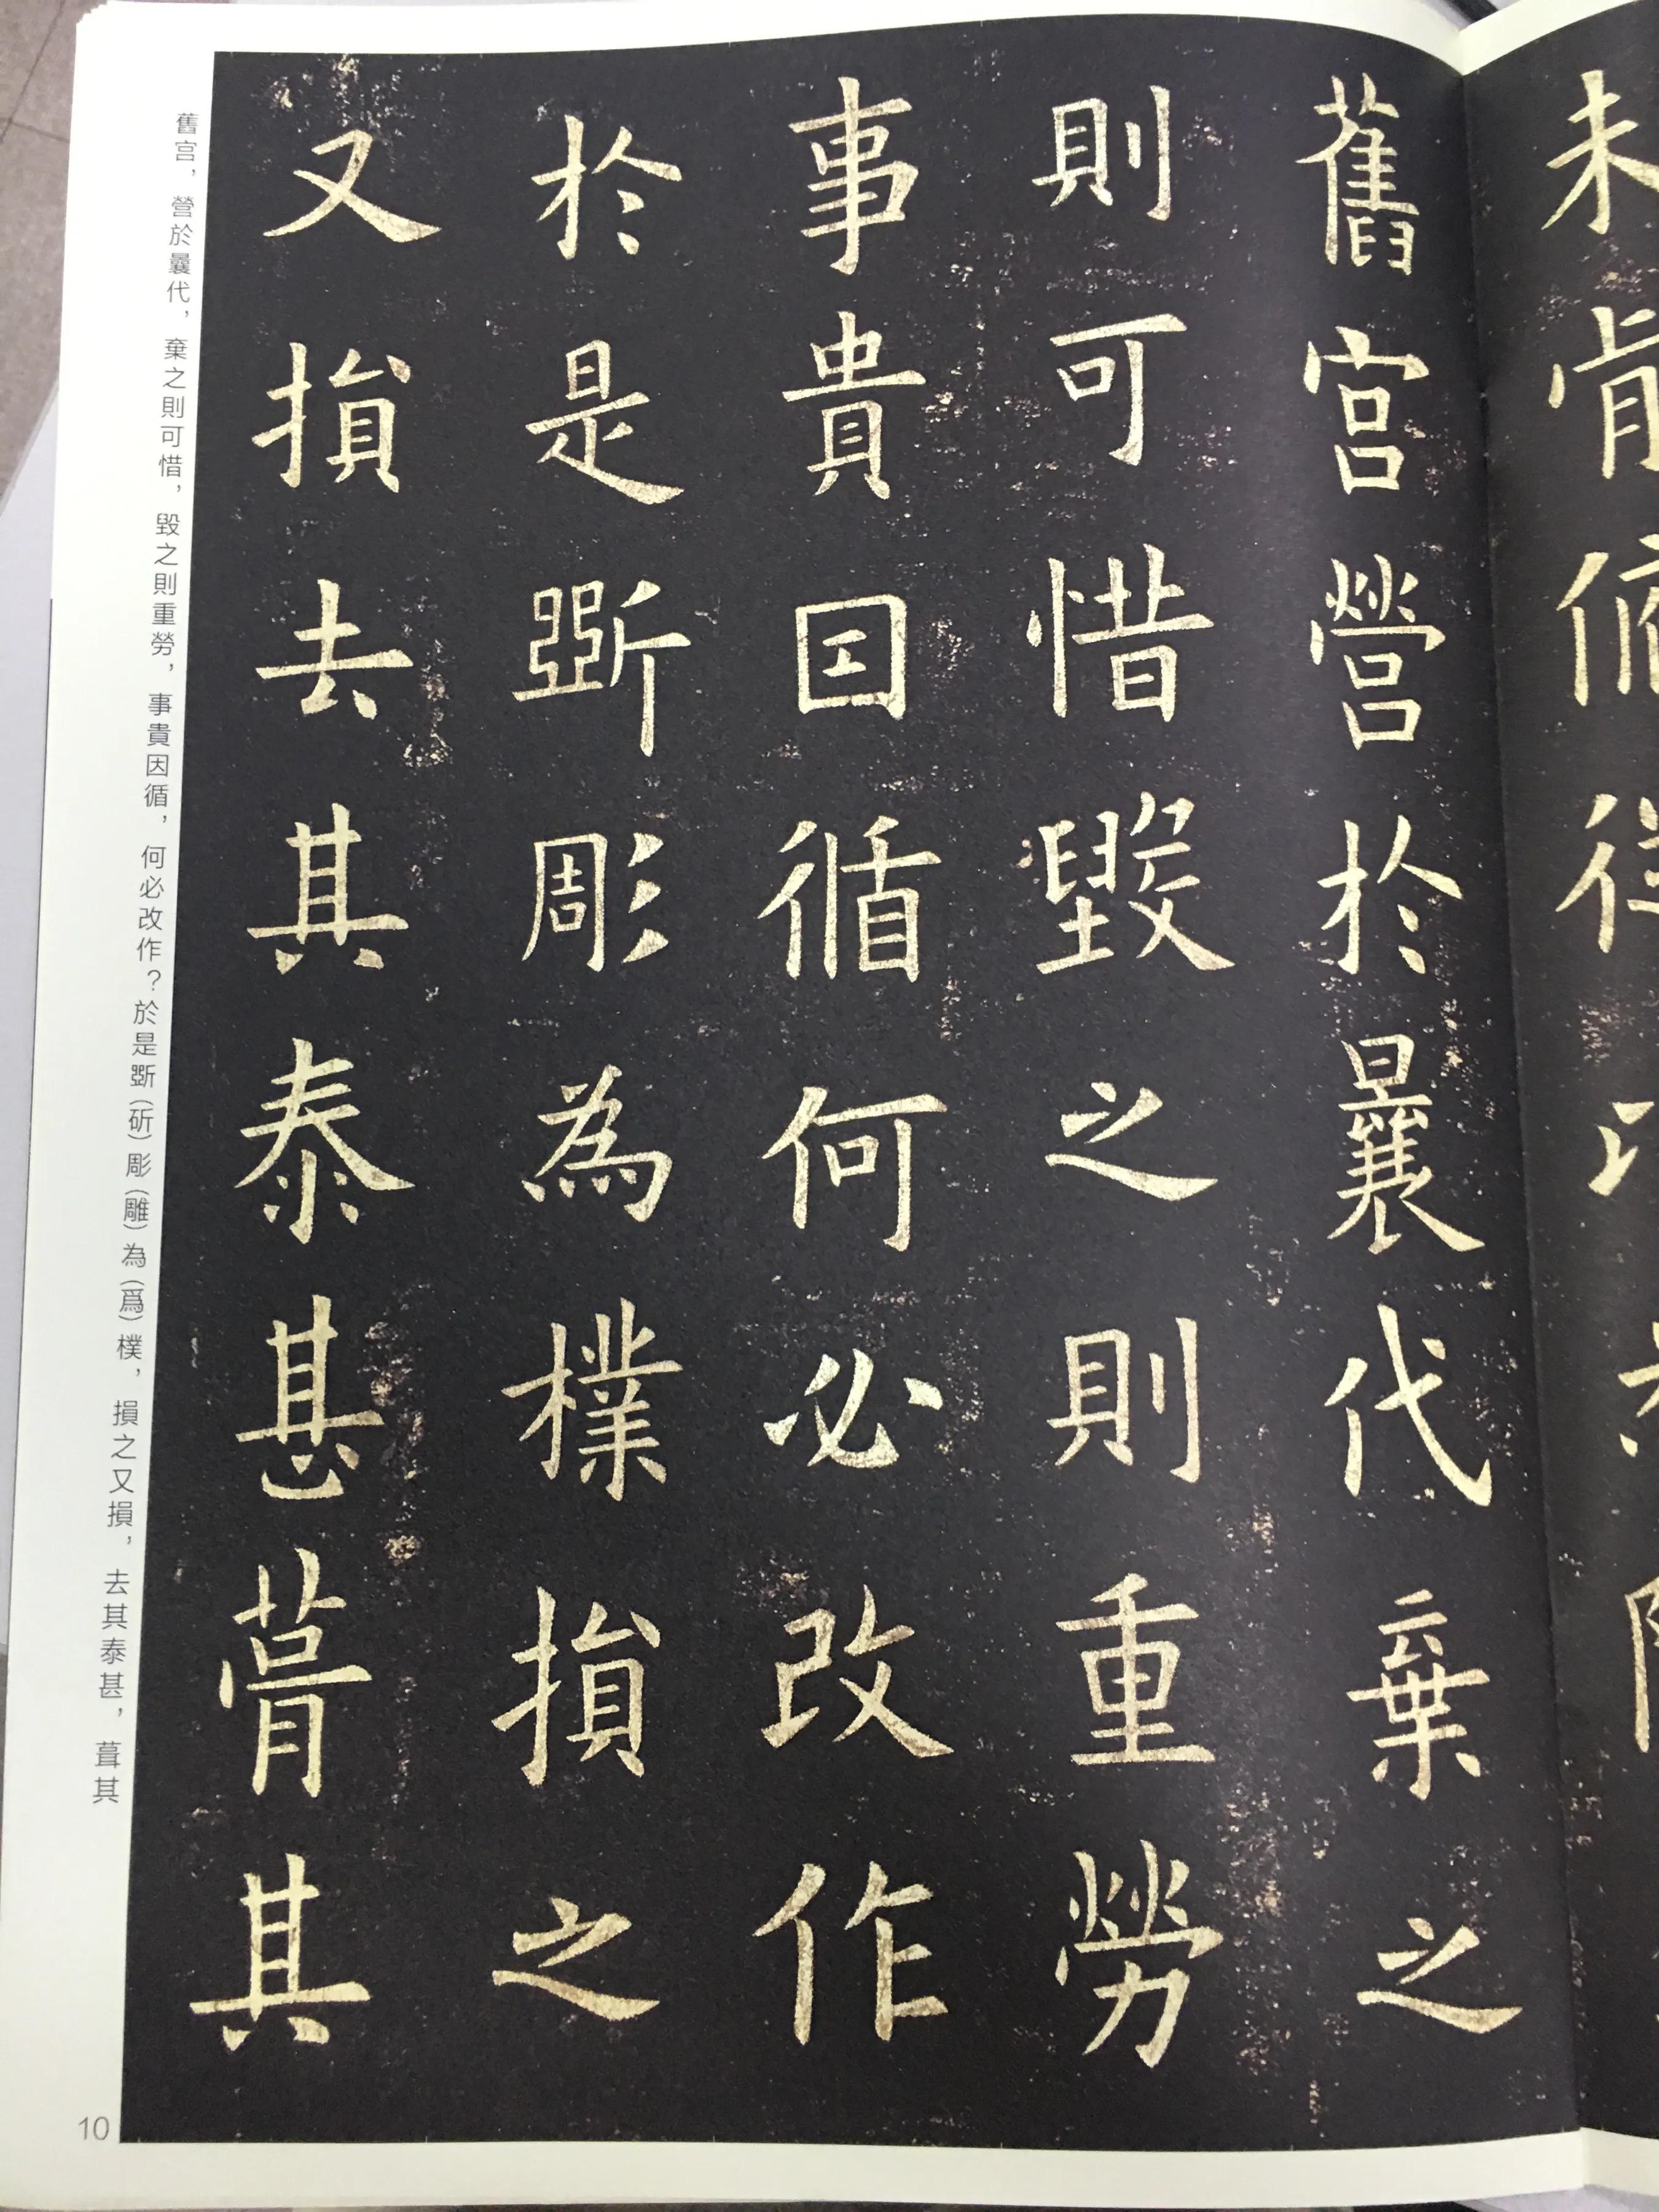 舊宮營於曩代棄之
則可惜毀之則重勞
事貴因循何必改作
於是斲彫為樸損之
又損去其泰甚葺其
舊宮，營於曩代，棄之則可惜，毀之則重勞，事貴因循，何必改作？於是斲（斫）彫（雕）為（爲）樸，損之又損，去其泰甚，葺其
10